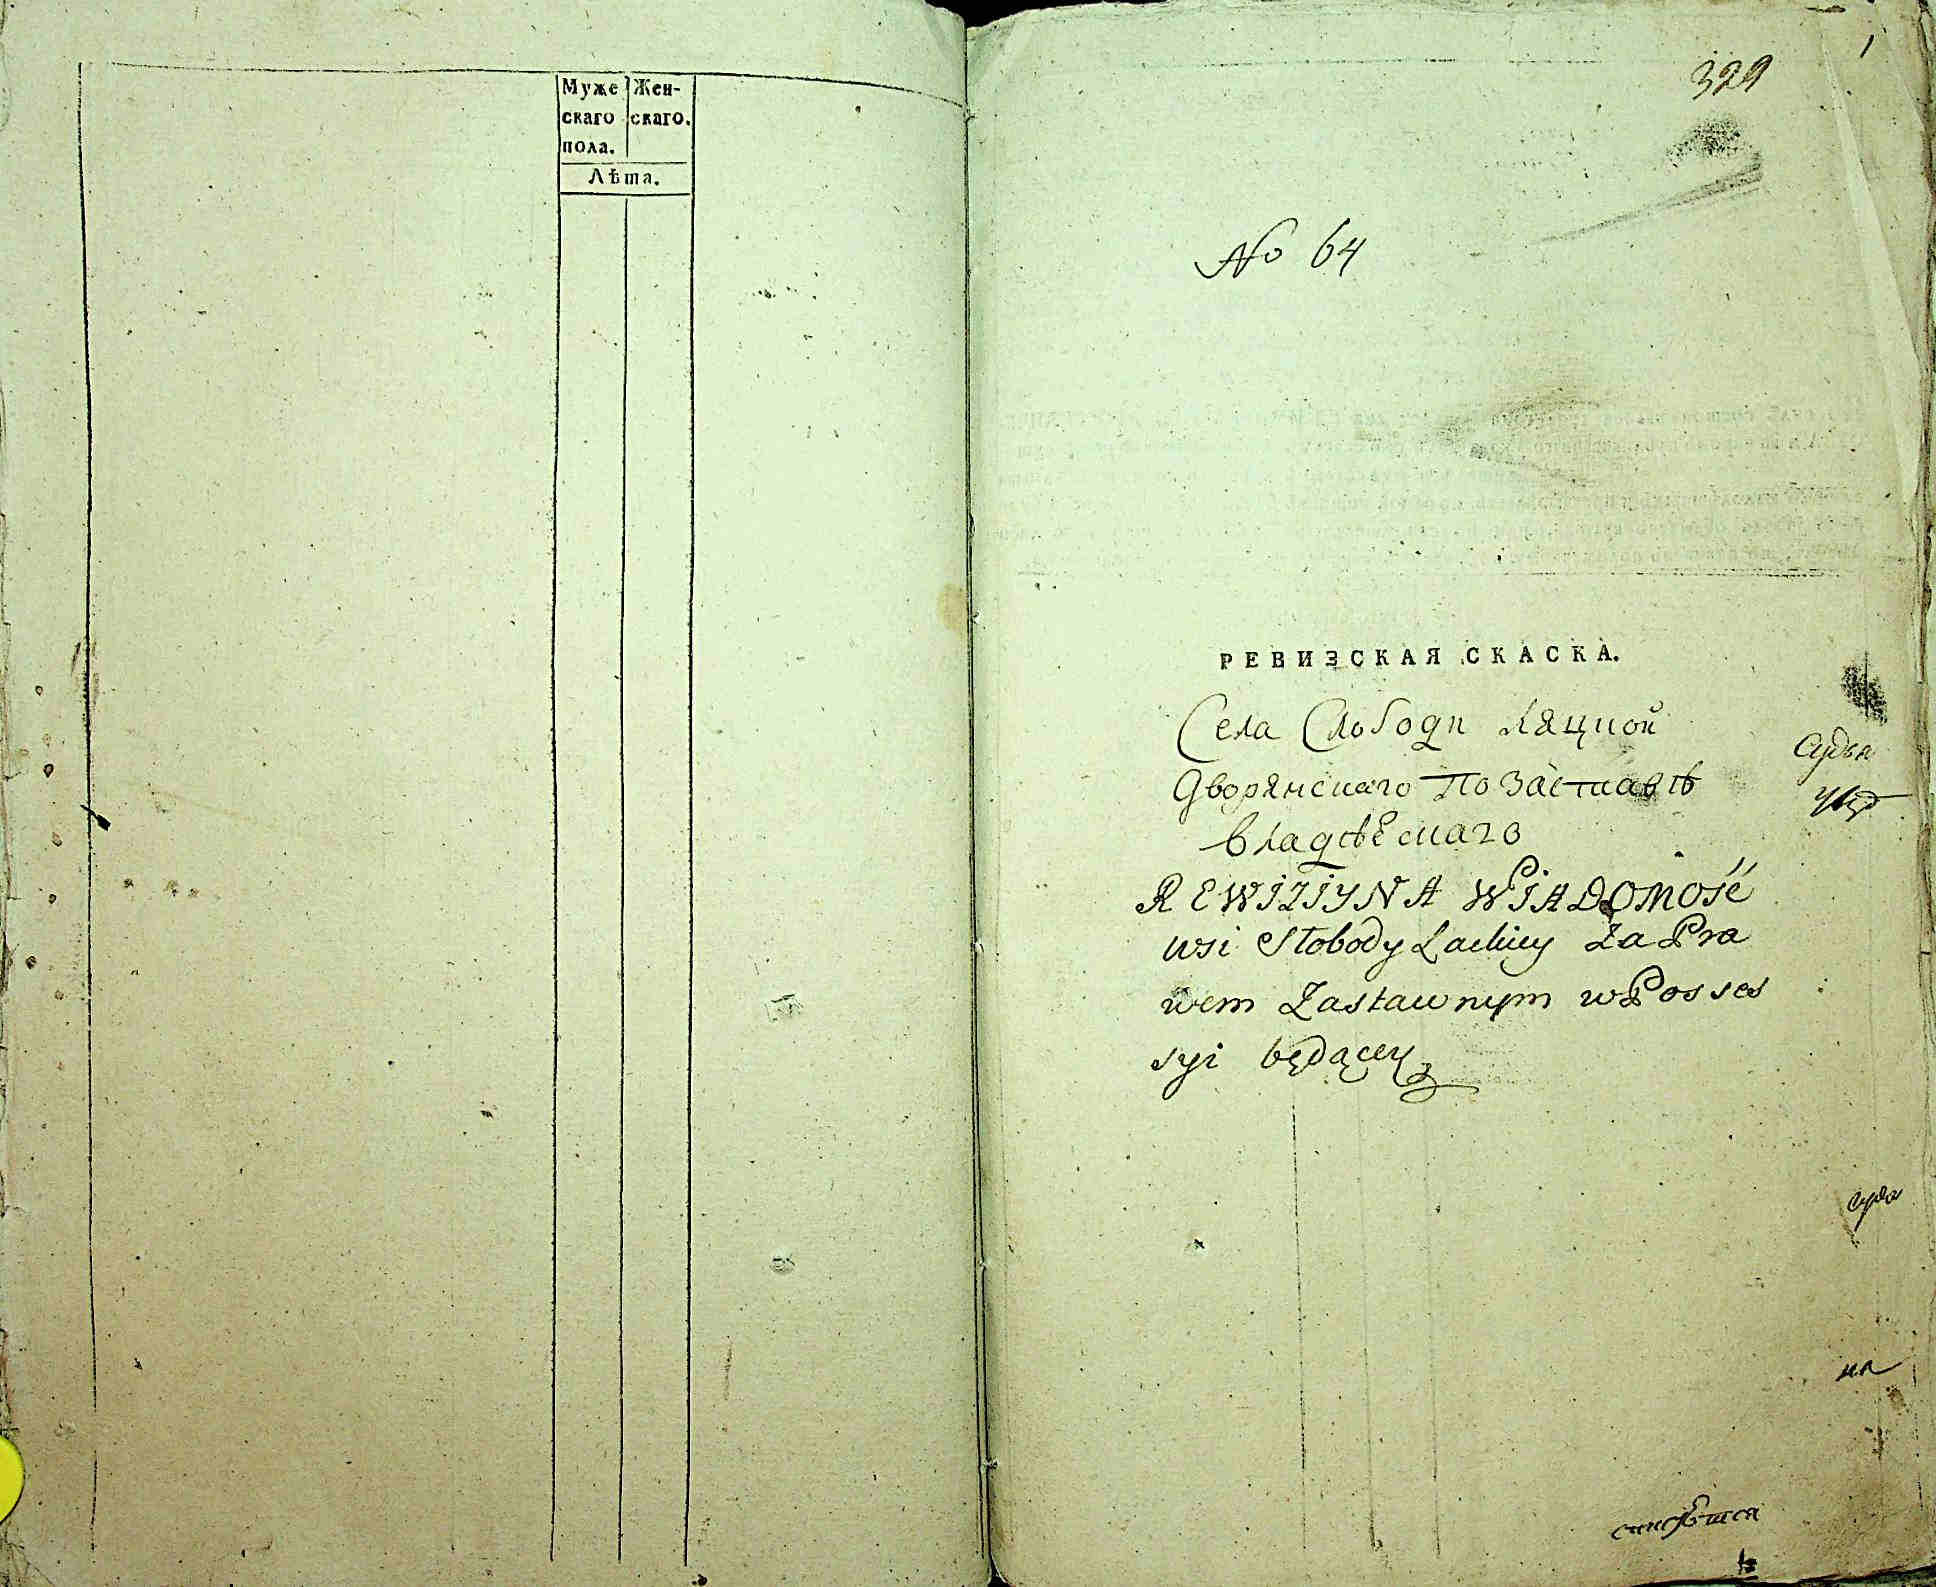 Муже Жен-
скаго скаго.
пола.
Лѣта.
1
329
No 64
РЕВИЗСКАЯ СКАСКА.
Села Слободи Ляцкой
Дворянскаго По Заставѣ
Владѣемаго
REWIZIYNA WIADOMOŚĆ
wsi Słobody Lackiey Za Pra
wem Zastawnym w Posses
syi będącey
Судья